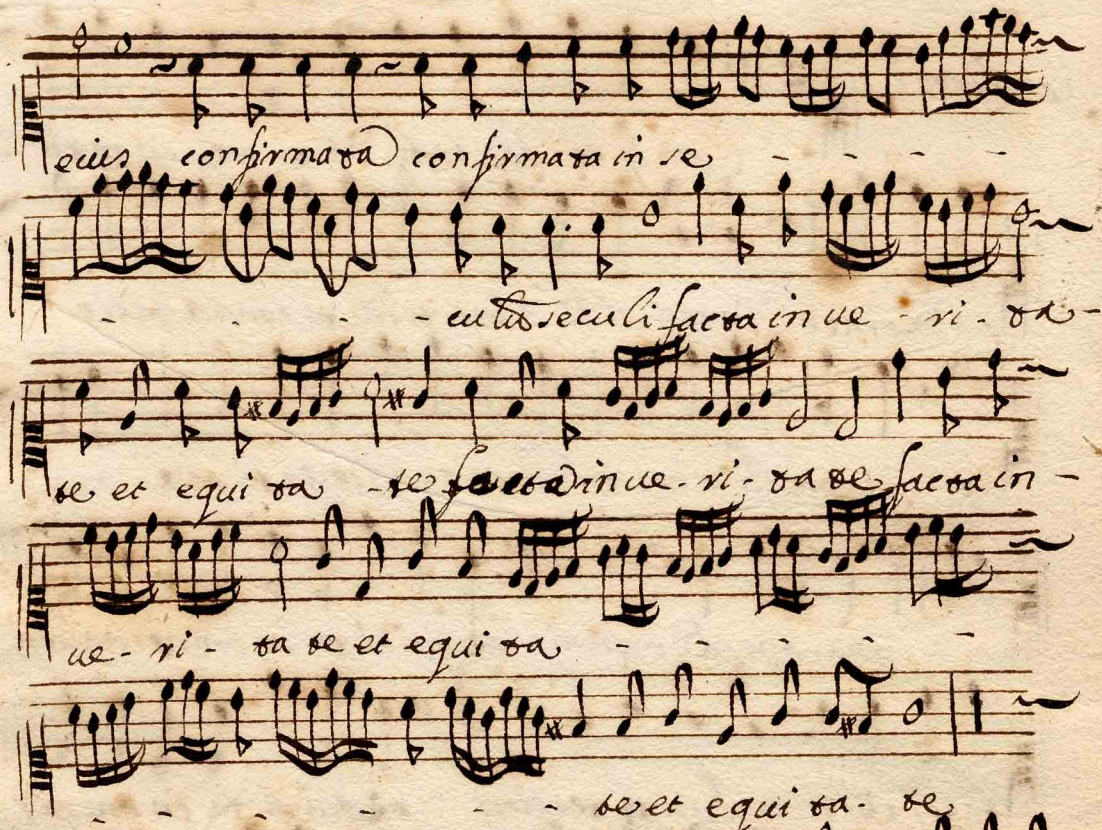 eius confirmata confirmata in se - - - -
- - - - culũ seculi facta in ue - ri - ta -
te et equi ta - te facta in ue - ri - ta te facta in -
ue - ri - ta te et equi ta - - - - -
- - - - - - te et equi ta - te